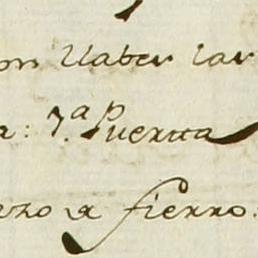 on llaber lar
a: 7.ª Puertta
a fierro: